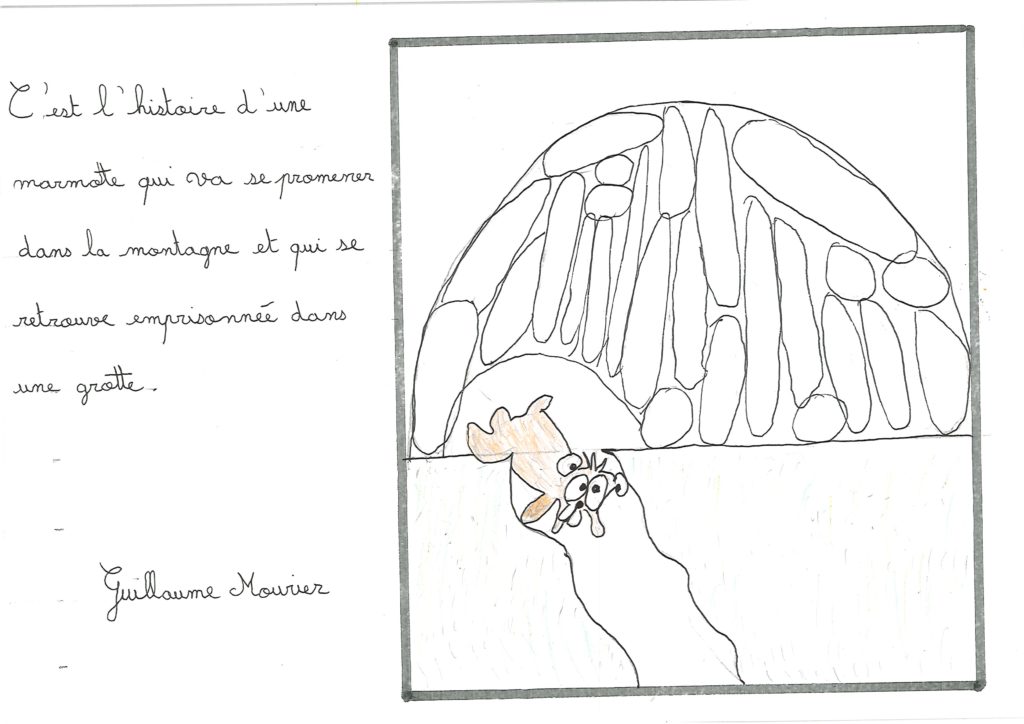 C'est l'histoire d'une
marmotte qui va se promener
dans la montagne et qui se
retrouve emprisonnée dans
une grotte.
Guillaume Mourier